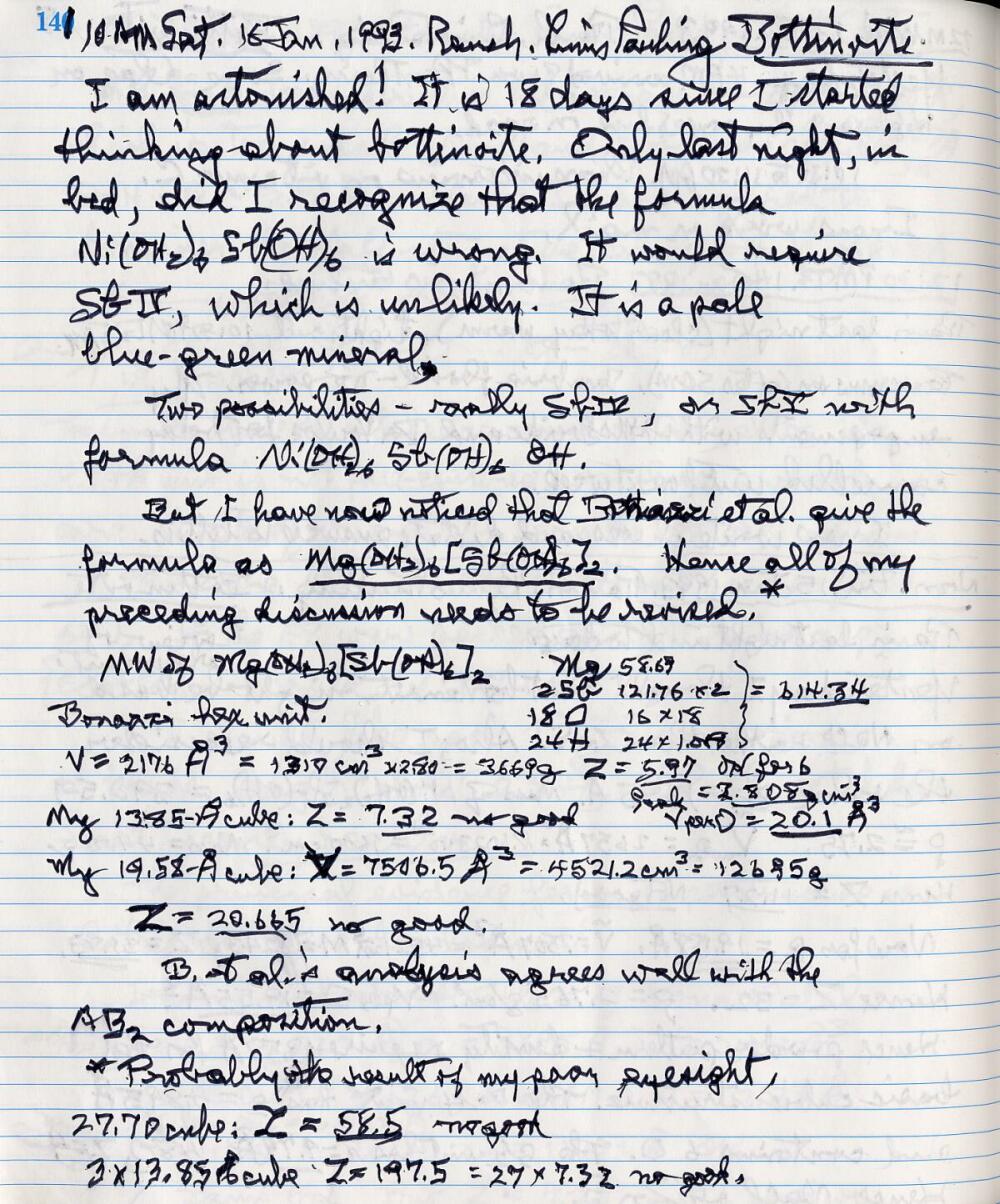 140
10 AM Sat. 16 Jan. 1993. Ranch. Linus Pauling Bottinoite.
I am astonished! It is 18 days since I started
thinking about bottinoite. Only last night, in
bed, did I recognize that the formula
Ni(OH₂)₆ Sb(OH)₆ is wrong. It would require
Sb IV, which is unlikely. It is a pale
blue-green mineral.
Two possibilities - really Sb IV, or Sb V with
formula Ni(OH₂)₆ Sb(OH)₆ OH.
But I have now noticed that et al. give the
formula as Mg(OH₂)₆[Sb(OH)₆]₂. Hence all of my
preceding discussion needs to be revised.*
MW of Mg(OH₂)₆[Sb(OH)₆]₂
Mg 58.69
2Sb 121.76 × 2 = 614.34
18 O 16 × 18
24 H 24 × 1.008
Bonazzi hex unit.
V = 2176 Å³ = 1310 cm³ × 2.80 = 3669g Z = 5.97 OK for 6
= 2.808 g cm⁻³
V per O = 20.1 Å³
My 13.85-Å cube: Z = 7.32 no good
My 19.58-Å cube: V = 7506.5 Å³ = 4521.2 cm³ = 12695g
Z = 20.665 no good.
B. et al.'s analysis agrees well with the
AB₂ composition.
* Probably the result of my poor eyesight,
27.70 cube: Z = 58.5 no good
3 × 13.85 Å cube Z = 197.5 = 27 × 7.32 no good.